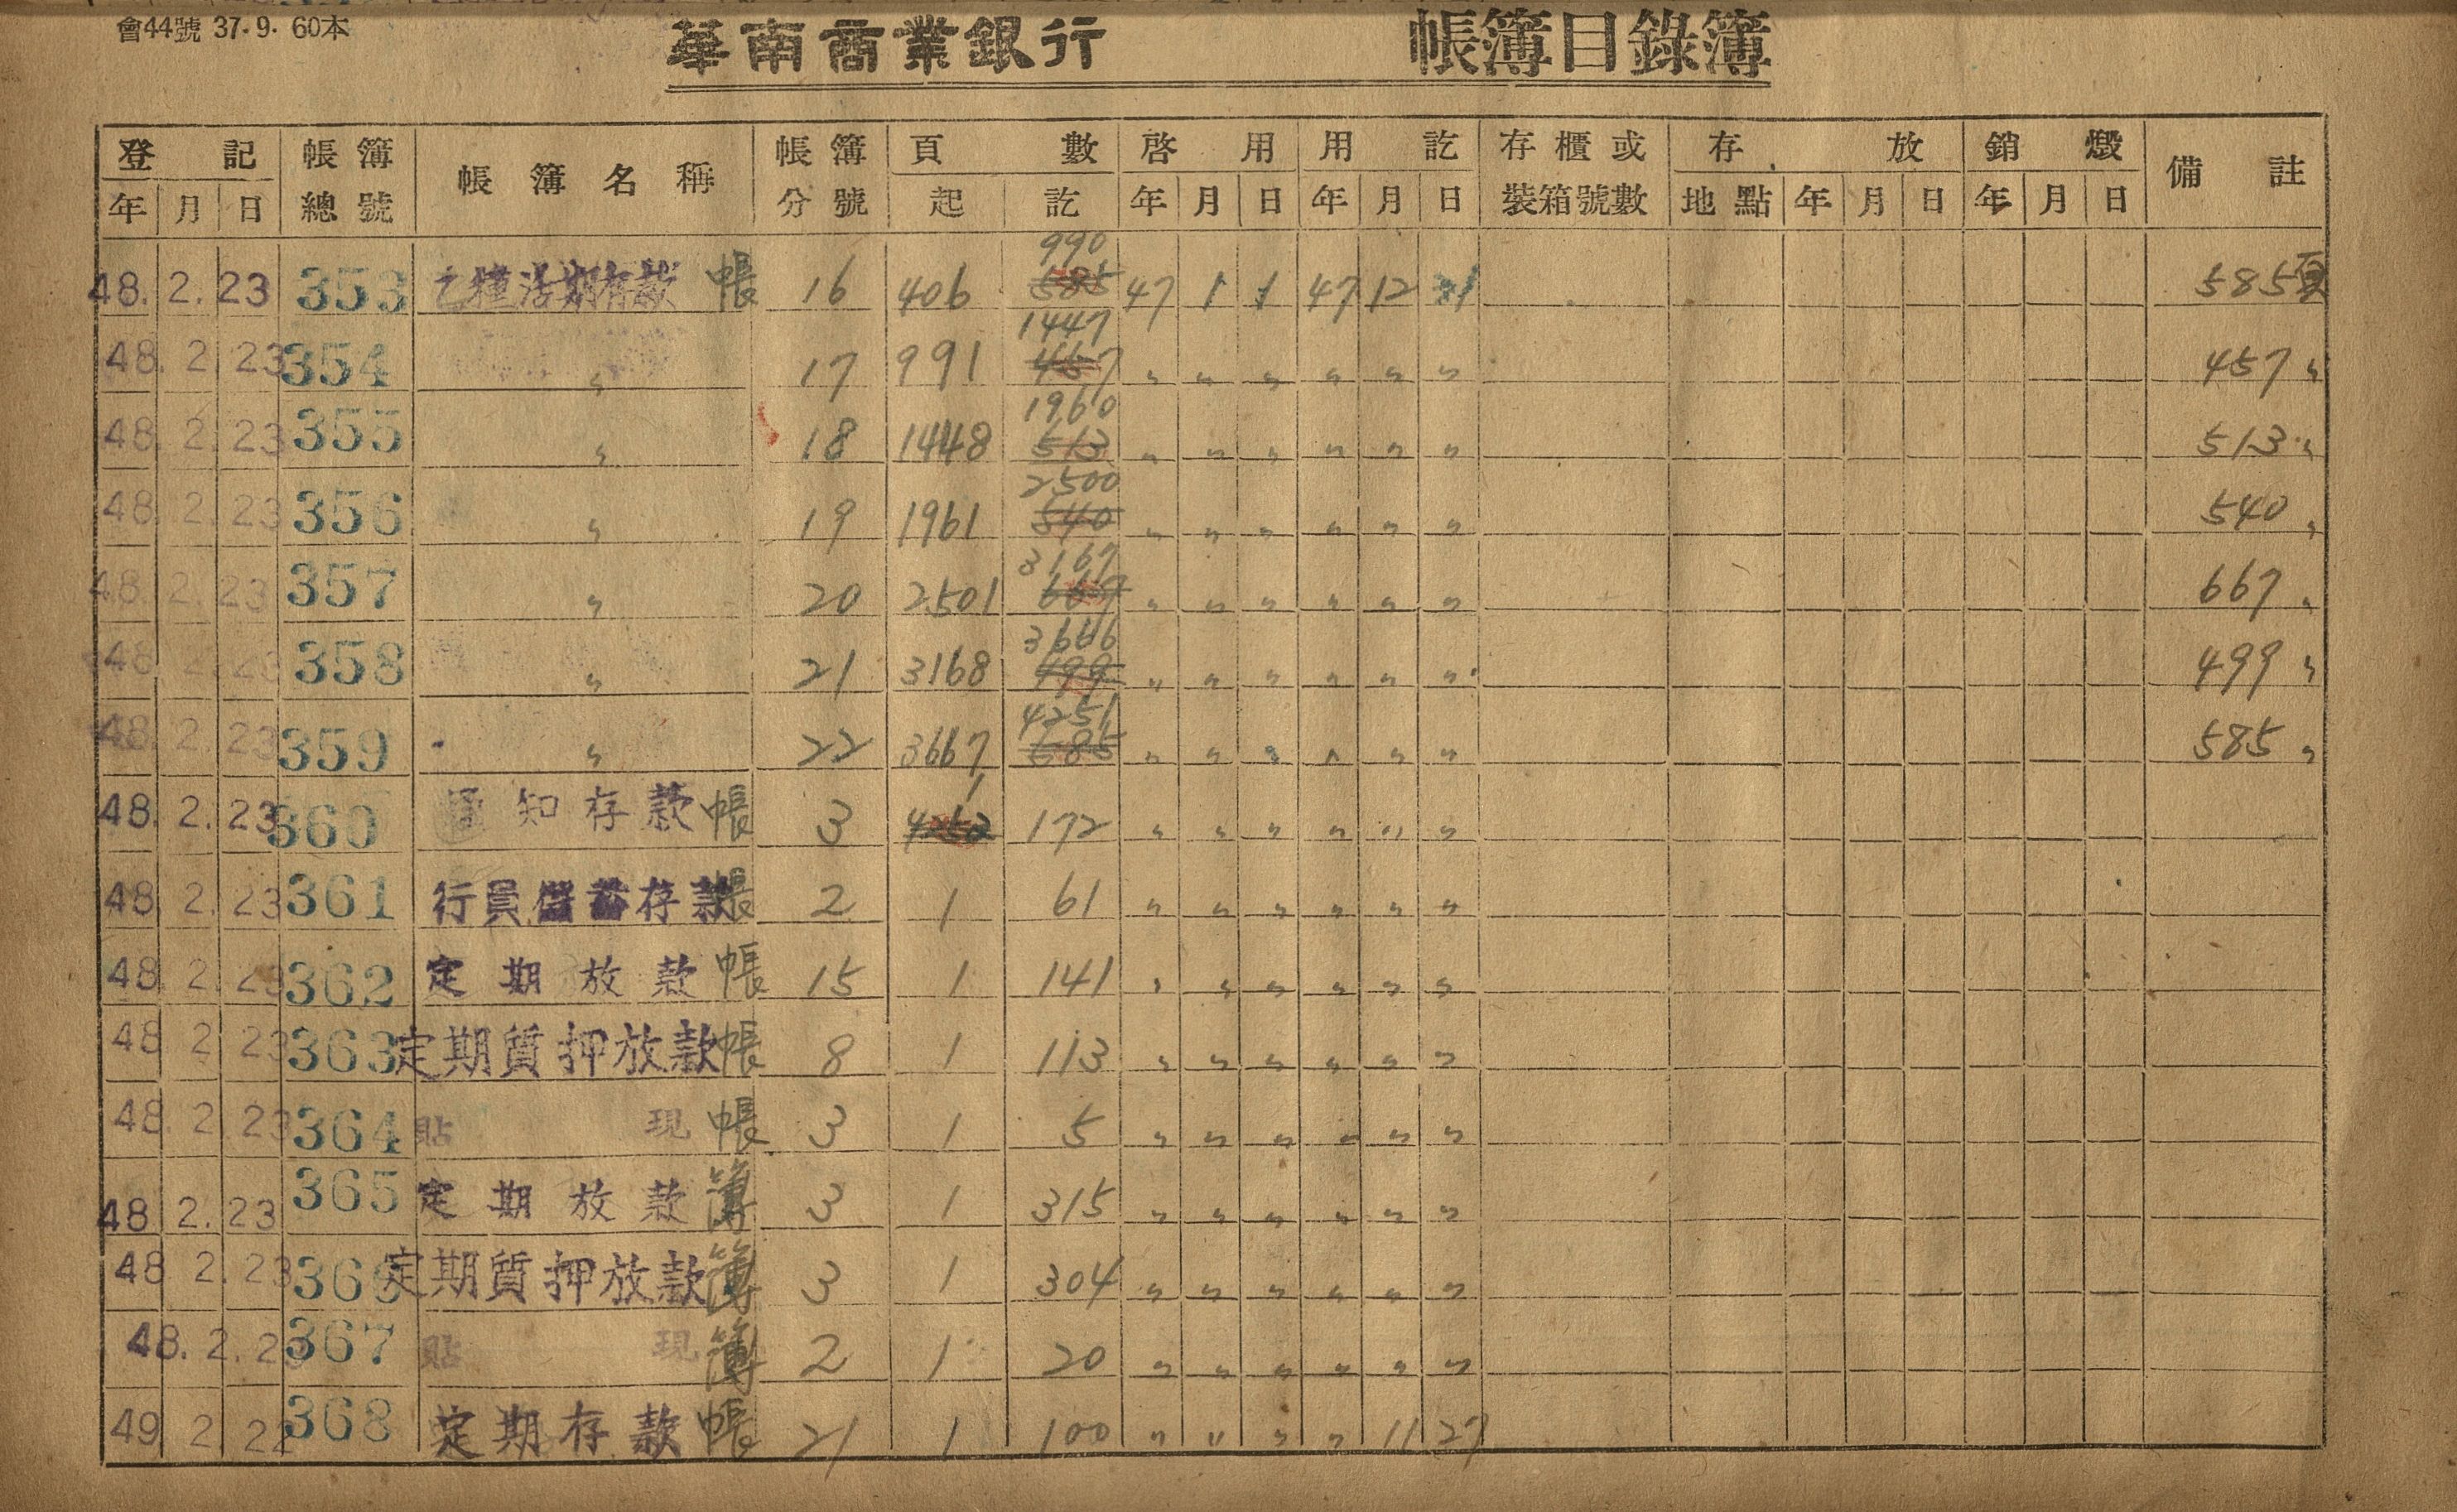 會44號 37.9. 60本
華南商業銀行 帳簿目錄簿
登記 帳簿 帳簿名稱 帳簿 頁數 啓用 用訖 存櫃或 存放 銷燬 備註
年 月 日 總號 分號 起 訖 年 月 日 年 月 日 裝箱號數 地點 年 月 日 年 月 日
990
48. 2. 23 353 乙種活期存款 帳 16 406 585 47 1 1 47 12 31 585頁
1447
48. 2. 23 354 〃 17 991 457 〃 〃 〃 〃 〃 〃 457 〃
1960
48. 2. 23 355 〃 18 1448 513 〃 〃 〃 〃 〃 〃 513 〃
2500
48. 2. 23 356 〃 19 1961 540 〃 〃 〃 〃 〃 〃 540 〃
3167
48. 2. 23 357 〃 20 2501 667 〃 〃 〃 〃 〃 〃 667 〃
3666
48. 2. 23 358 〃 21 3168 499 〃 〃 〃 〃 〃 〃 499 〃
4251
48. 2. 23 359 〃 22 3667 585 〃 〃 〃 〃 〃 〃 585 〃
1
48. 2. 23 360 通知存款帳 3 4252 172 〃 〃 〃 〃 〃 〃
48. 2. 23 361 行員儲蓄存款帳 2 1 61 〃 〃 〃 〃 〃 〃
48. 2. 23 362 定期放款帳 15 1 141 〃 〃 〃 〃 〃 〃
48 2 23 363 定期質押放款帳 8 1 113 〃 〃 〃 〃 〃 〃
48. 2. 23 364 貼現帳 3 1 5 〃 〃 〃 〃 〃 〃
48 2. 23 365 定期放款簿 3 1 315 〃 〃 〃 〃 〃 〃
48 2. 23 366 定期質押放款簿 3 1 304 〃 〃 〃 〃 〃 〃
48. 2. 23 367 貼現簿 2 1 20 〃 〃 〃 〃 〃 〃
49 2 22 368 定期存款帳 21 1 100 〃 〃 〃 〃 11 27